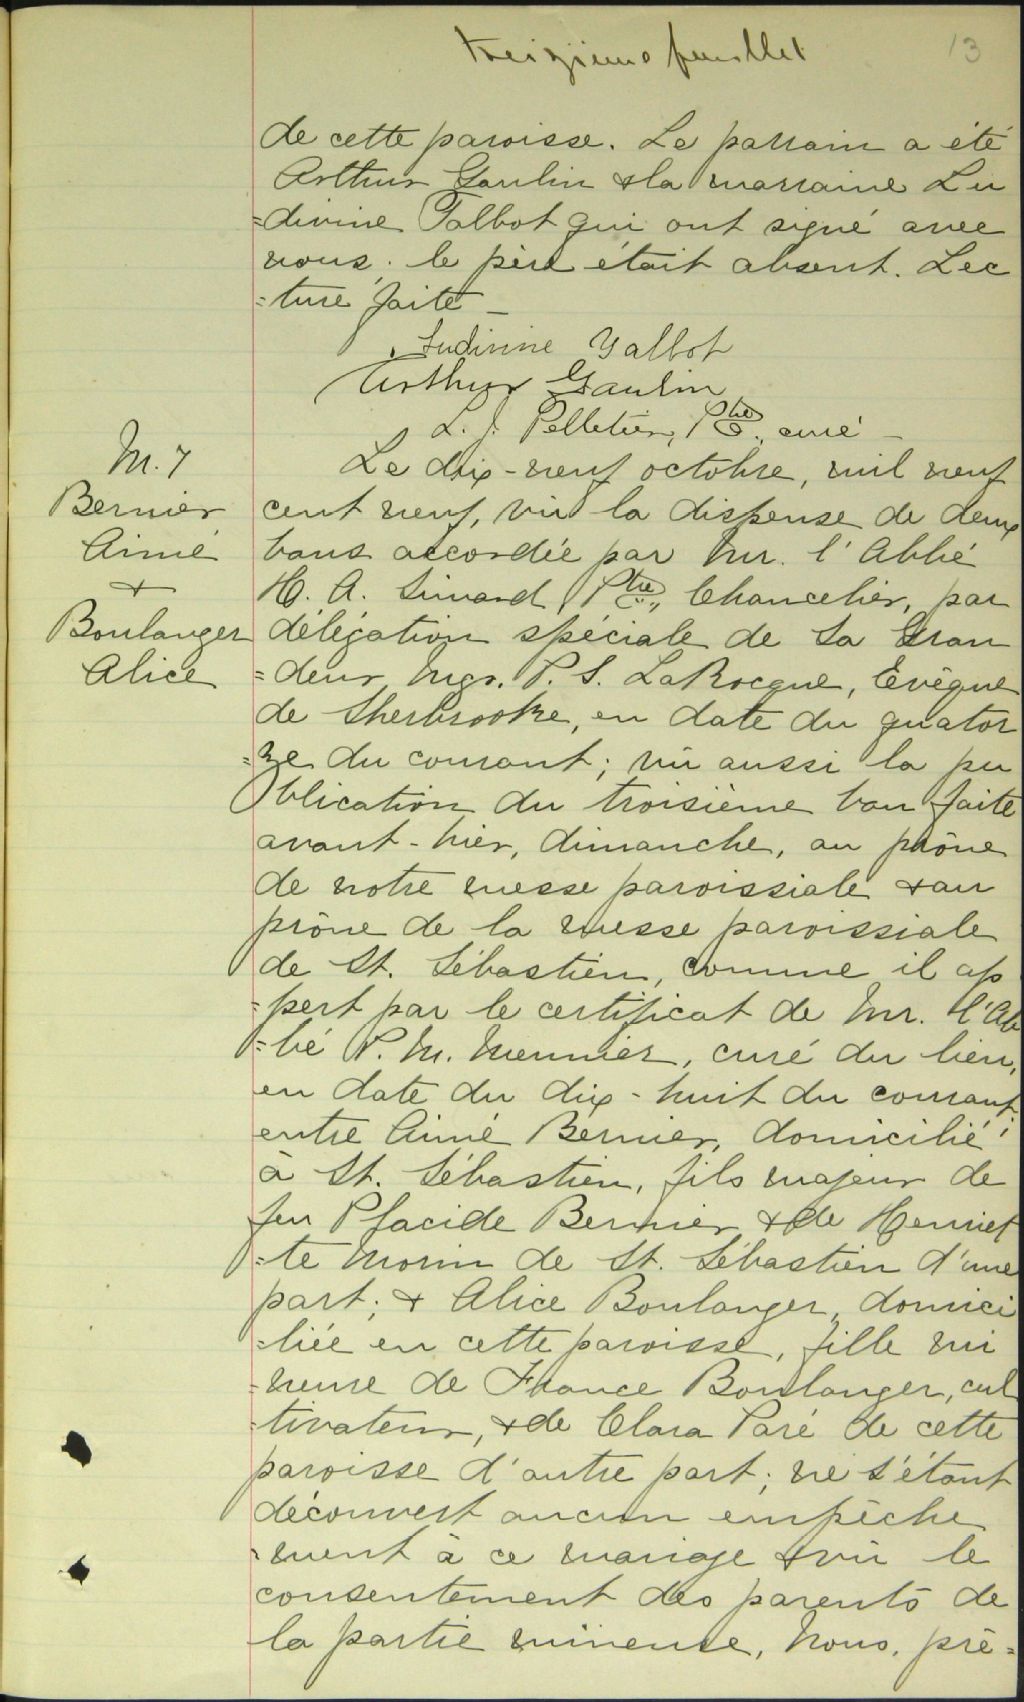 treizième feuillet
13
de cette paroisse. Le parrain a été
Arthur Gaulin & la marraine Lu
=divine Talbot qui ont signé avec
nous; le père était absent. Lec
=ture faite _
Ludivine Talbot
Arthur Gaulin
L. J. Pelletier, Ptre, curé _
M. 7
Bernier
Aimé
&
Boulanger
Alice
Le dix-neuf octobre, mil neuf
cent neuf, vu la dispense de deux
bans accordée par Mr. l'Abbé
H. A. Simard, Ptre, Chancelier, par
délégation spéciale de Sa Gran
=deur Mgr. P. S. LaRocque, Evêque
de Sherbrooke, en date du quator
=ze du courant; vu aussi la pu
blication du troisième ban faite
avant-hier, dimanche, au prône
de notre messe paroissiale & au
prône de la messe paroissiale
de St. Sébastien, comme il ap
=pert par le certificat de Mr. l'Ab
=bé P. M. Meunier, curé du lieu,
en date du dix-huit du courant;
entre Aimé Bernier, domicilié
à St. Sébastien, fils majeur de
feu Placide Bernier & de Henriet
=te Morin de St. Sébastien d'une
part; & Alice Boulanger, domici
=liée en cette paroisse, fille mi
=neure de France Boulanger, cul
=tivateur, & de Clara Paré de cette
paroisse d'autre part; ne s'étant
découvert aucun empêche
=ment à ce mariage & vu le
consentement des parents de
la partie mineure, Nous, prê=